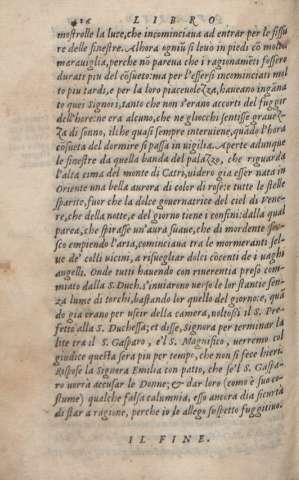 L I B R O
mostrolle la luce, che incominciaua ad entrar per le fissu
re delle finestre. Alhora ogniũ si leuò in piedi cõ molta
marauiglia, perche nõ pareua che i ragionamẽti fossero
durati piu del cõsueto: ma per l'essersi incominciati mol
to piu tardi, e per la loro piaceuolezza, haueano ingãna
to quei Signori, tanto che non s'erano accorti del fuggir
dell'hore: ne era alcuno, che ne gliocchi sentisse grauez
za di sonno, il che quasi sempre interuiene, quãdo l'hora
cõsueta del dormire si passa in uigilia. Aperte adunque
le finestre da quella banda del palazzo, che riguarda
l'alta cima del monte di Catri, uidero gia esser nata in
Oriente una bella aurora di color di rose: e tutte le stelle
sparite, fuor che la dolce gouernatrice del ciel di Vene-
re, che della notte, e del giorno tiene i confini: dalla qual
parea, che spirasse un'aura suaue, che di mordente fre-
sco empiendo l'aria, cominciaua tra le mormeranti sel-
ue de' colli uicini, a risuegliar dolci cõcenti de i uaghi
augelli. Onde tutti hauendo con riuerentia preso com-
miato dalla S. Duch. s'inuiarono uerso le lor stantie sen-
za lume di torchi, bastando lor quello del giorno: e, quã
do gia erano per uscir della camera, uoltossi il S. Pre-
fetto alla S. Duchessa; et disse, Signora per terminar la
lite tra il S. Gasparo, e'l S. Magnifico, uerremo col
giudice questa sera piu per tempo, che non si fece hieri.
Rispose la Signora Emilia con patto, che se'l S. Gaspa-
ro uorrà accusar le Donne; & dar loro (como è suo co-
stume) qualche falsa calumnia, esso ancora dia sicurtà
di star a ragione, perche io lo allego suspetto fuggitiuo.
I L F I N E.